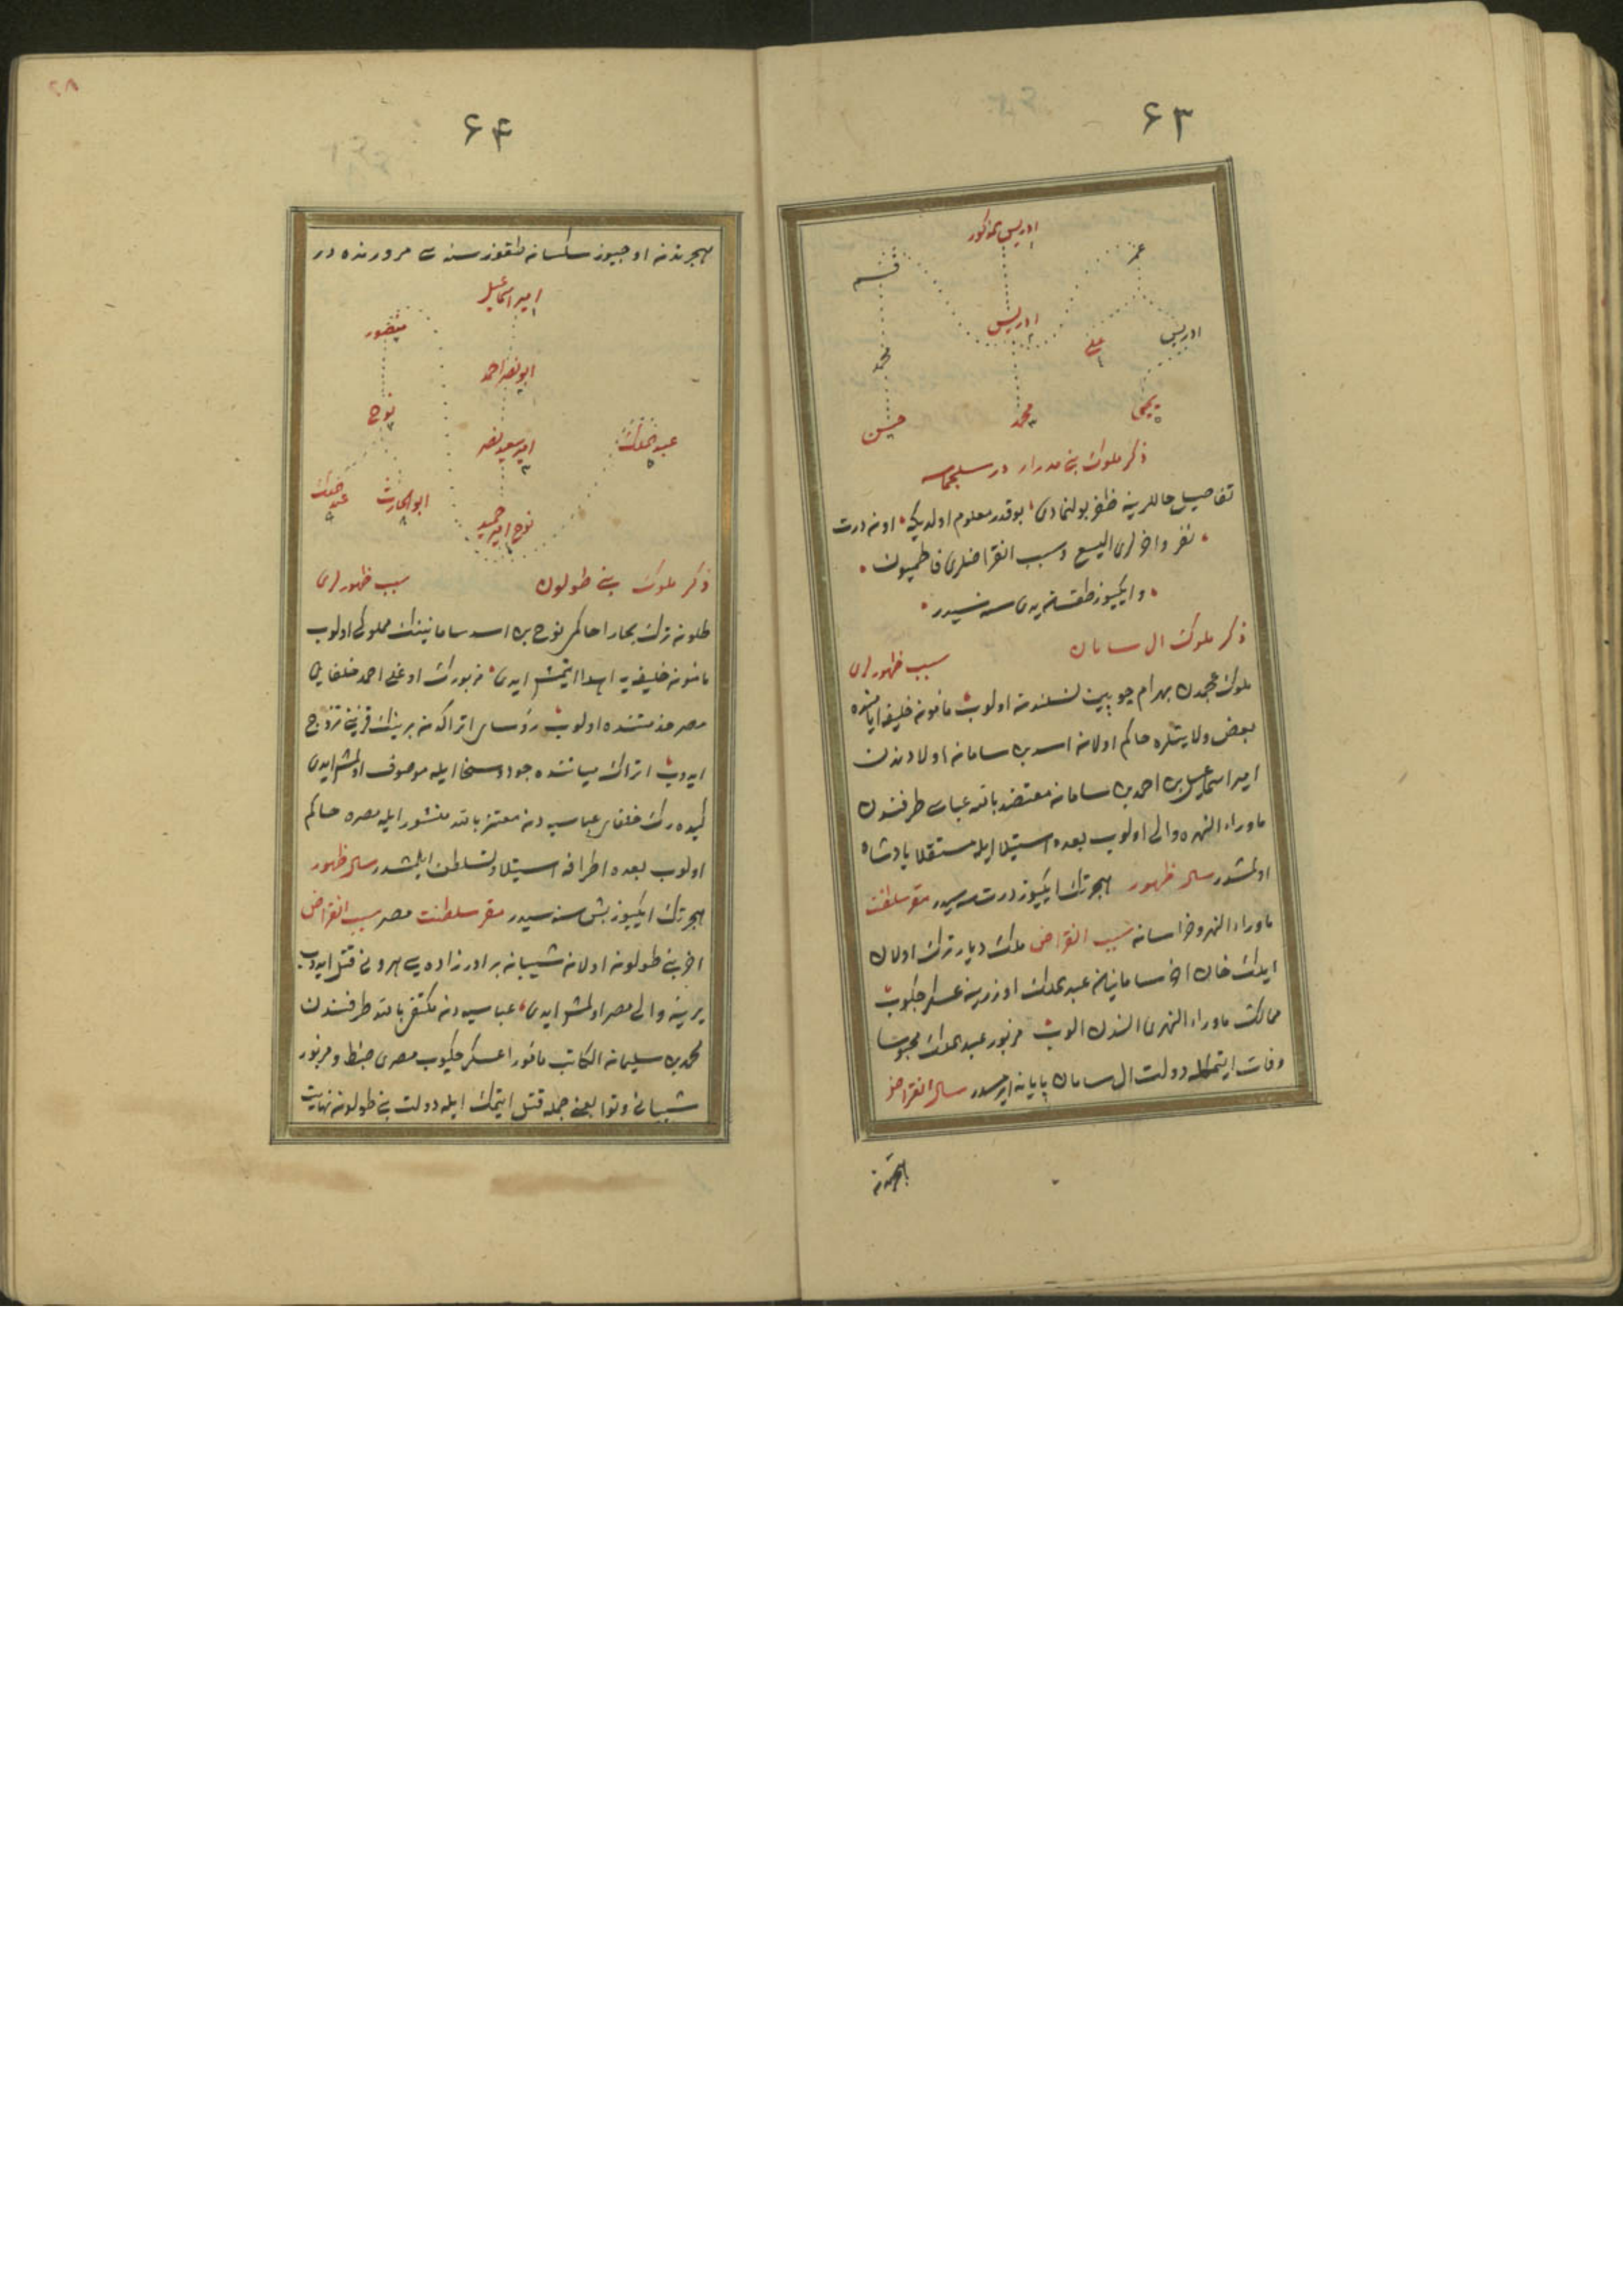 ۶۳
ادریس مذکور
عمر
قسم
ادریس
ادریس
علی
محمد
یحیی
محمد
حسن
ذکر ملوک بنی مدرار در سلجماسه
تفاصیل حاللرینه ظفر بولنمادی بوقدر معلوم اولدیکه اون درت
نفر واخرلری الیسع وسبب انقراضلری فاطمیون
وایکیوز طقسان یدی سنه سیدر
ذکر ملوک ال سامان سبب ظهورلری
ملوک عجمدن بهرام چوبین نسلندن اولوب مامون خلیفه ایامنده
بعض ولایتلره حاکم اولان اسد بن سامان اولادندن
امیر اسماعیل بن احمد بن سامان معتضد بالله عباسی طرفندن
ماوراء النهره والی اولوب بعده استیلا ایله مستقلا پادشاه
اولمشدر سال ظهور هجرتک ایکیوز درت سنه سیدر مقر سلطنت
ماوراء النهر وخراسان سبب انقراض ملک دیار ترک اولان
ایلک خان اخر سامانیان عبد الملک اوزرینه عسکر چکوب
ممالک ماوراء النهری الندن الوب مزبور عبد الملک محبوسا
وفات ایتمکله دولت ال سامان پایانه ایرمشدر سال انقراض
هجرتدن
۲۸
۶۴
هجرتدن اوچیوز سکسان طقوز سنه سی مرورنده در
امیر اسماعیل
منصور
ابو نصر احمد
نوح
عبد الملک
امیر سعید نصر
عبد الملک
ابو الحارث
نوح امیر حمید
ذکر ملوک بنی طولون سبب ظهورلری
طلون ترک بخارا حاکمی نوح بن اسد سامانینک مملوکی اولوب
مامون خلیفه یه اهدا ایتمش ایدی مزبورک اوغلی احمد خلفای
مصر خدمتنده اولوب رؤسای اتراکدن برینک قزینی تزوج
ایدوب اتراک میاننده جود وسخا ایله موصوف اولمش ایدی
کیده رک خلفای عباسیه دن معتز بالله منشور ایله مصره حاکم
اولوب بعده اطرافه استیلا وتسلطن ایلمشدر سال ظهور
هجرتک ایکیوز بش سنه سیدر مقر سلطنت مصر سبب انقراض
اخر بنی طولون اولان شیبان برادر زاده سی هرونی قتل ایدوب
یرینه والی مصر اولمش ایدی عباسیه دن مکتفی بالله طرفندن
محمد بن سلیمان الکاتب مامورا عسکر چکوب مصری ضبط ومزبور
شیبانی وتوابعنی جمله قتل ایتمک ایله دولت بنی طولون نهایت